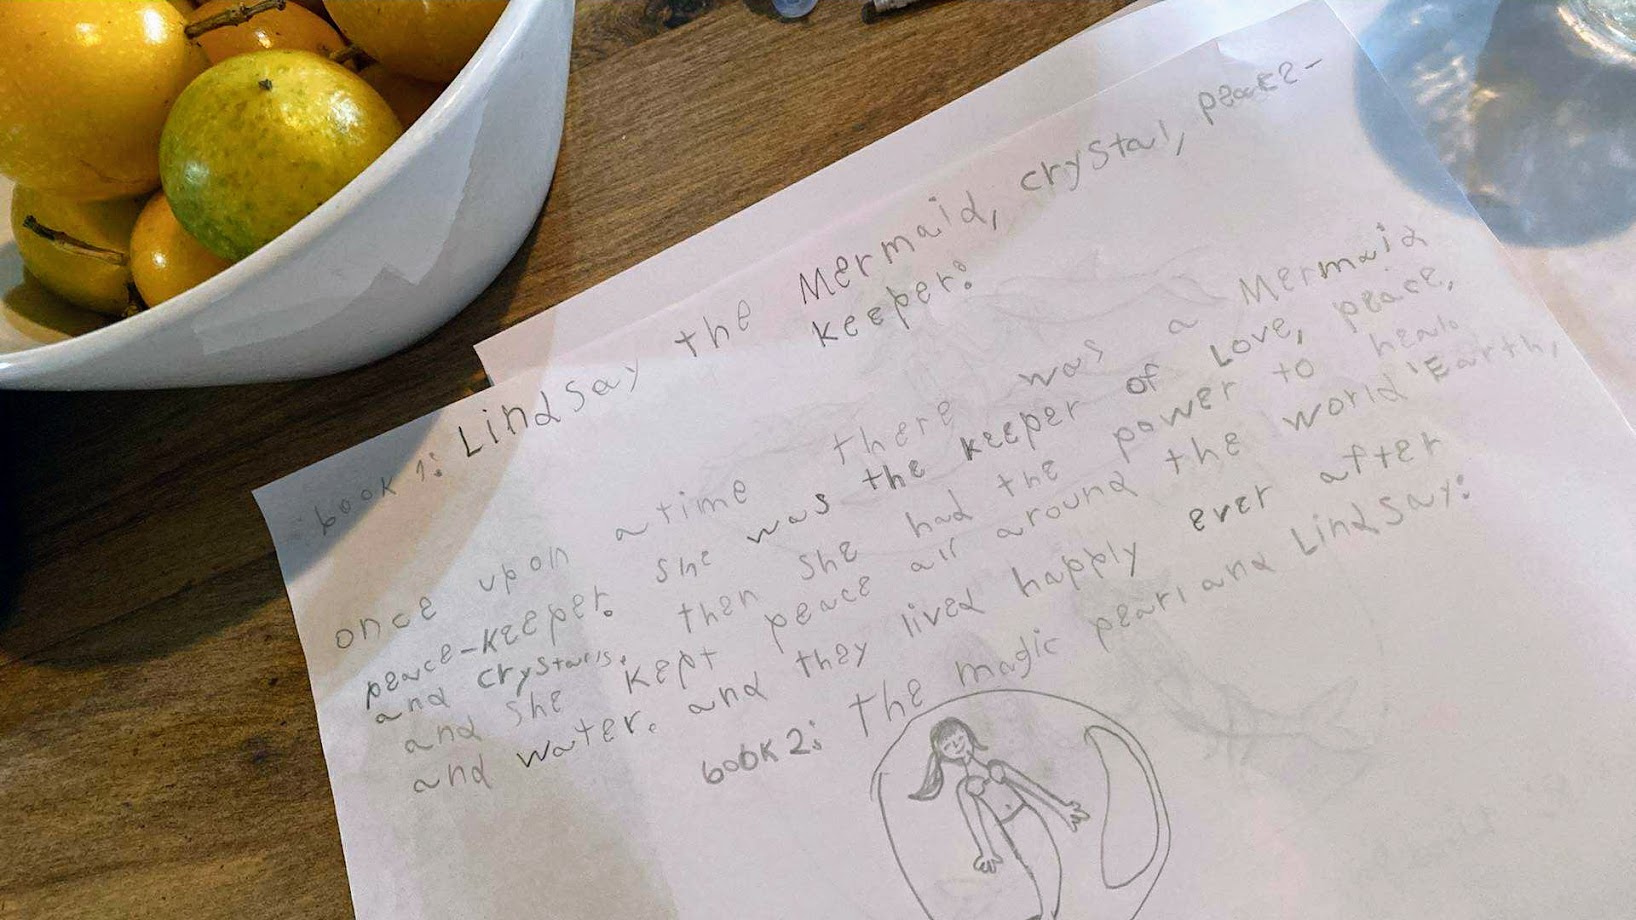 book 1: LindSay the Mermaid, crystal, peace-
keeper:
once upon a time there was a Mermaid
peace-keeper. She was the keeper of Love, peace,
and crystals. then she had the power to heal.
and she kept peace all around the world Earth,
and water. and they lived happly ever after
book 2: the magic pearl and LindSay: